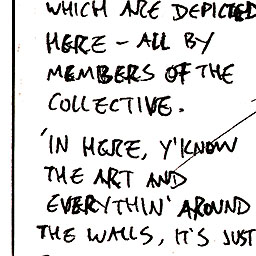 WHICH ARE DEPICTED
HERE - ALL BY
MEMBERS OF THE
COLLECTIVE.
'IN HERE, Y'KNOW
THE ART AND
EVERYTHIN' AROUND
THE WALLS, IT'S JUST